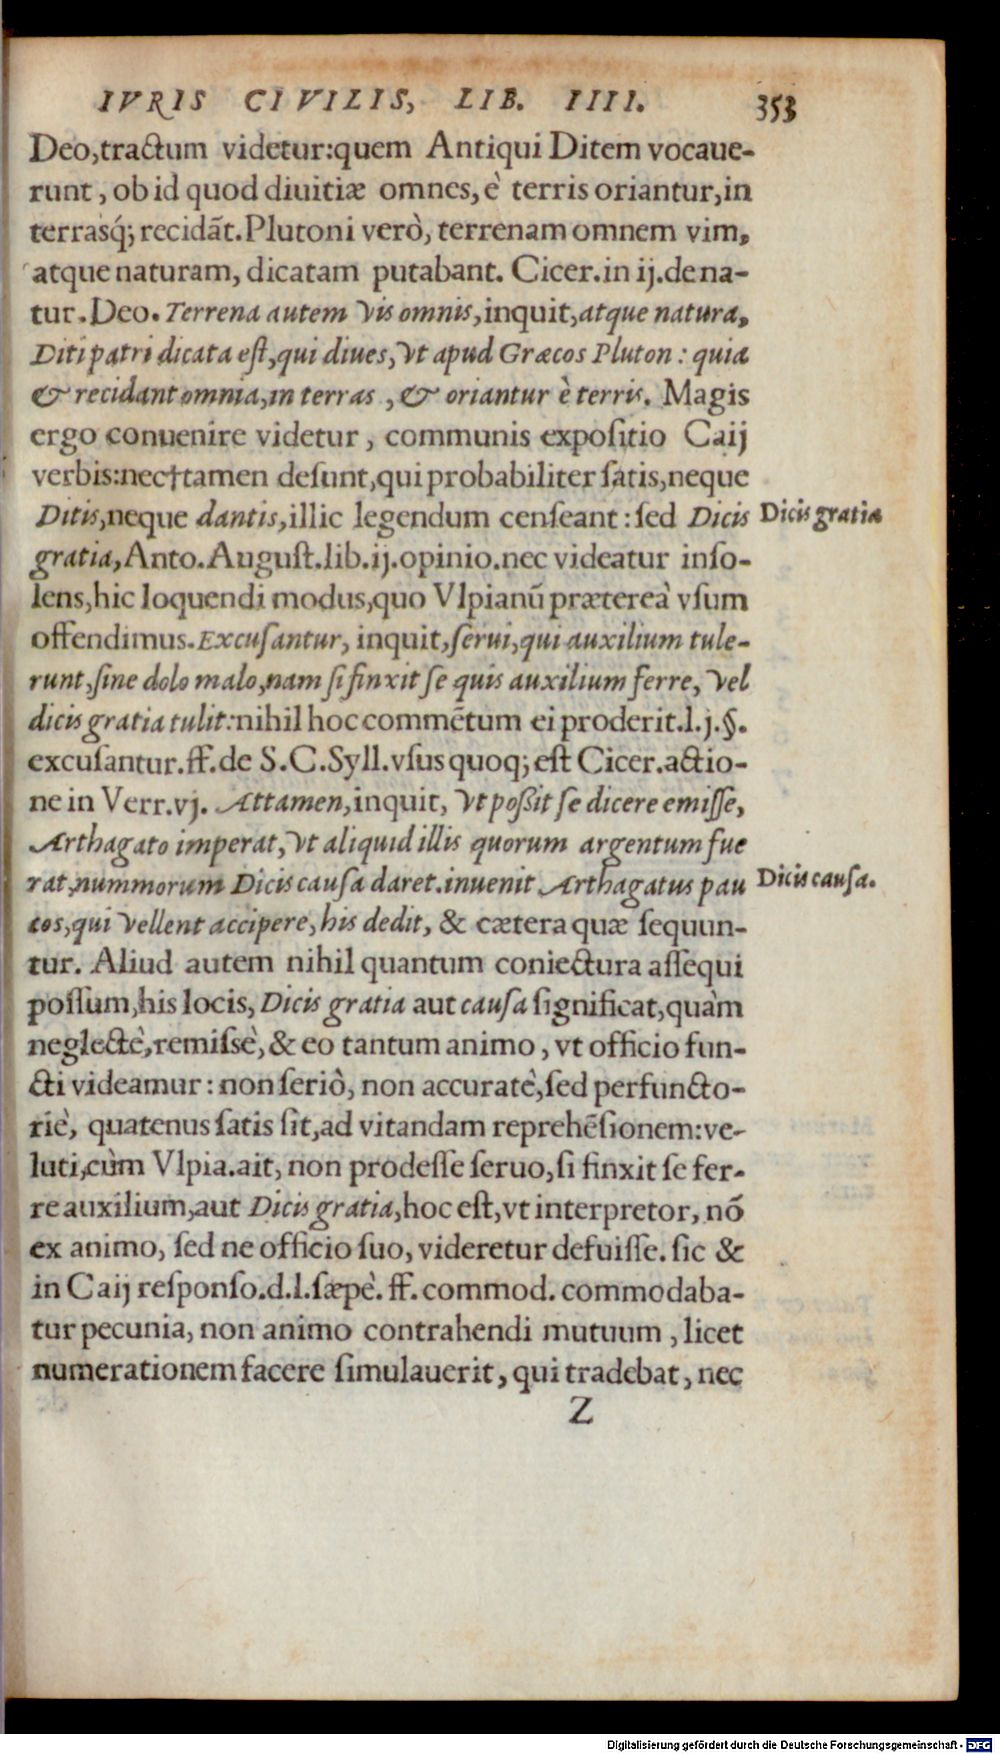 IVRIS CIVILIS, LIB. IIII. 353
Deo, tractum videtur: quem Antiqui Ditem vocaue-
runt, ob id quod diuitiæ omnes, è terris oriantur, in
terrasq́; recidãt. Plutoni verò, terrenam omnem vim,
atque naturam, dicatam putabant. Cicer. in ij. de na-
tur. Deo. Terrena autem vis omnis, inquit, atque natura,
Diti patri dicata eſt, qui diues, vt apud Græcos Pluton: quia
& recidant omnia, in terras, & oriantur è terris. Magis
ergo conuenire videtur, communis expoſitio Caij
verbis: nec†tamen deſunt, qui probabiliter ſatis, neque
Ditis, neque dantis, illic legendum cenſeant: ſed Dicis
Dicis gratia
gratia, Anto. Auguſt. lib. ij. opinio. nec videatur inſo-
lens, hic loquendi modus, quo Vlpianũ prætereà vſum
offendimus. Excuſantur, inquit, ſerui, qui auxilium tule-
runt, ſine dolo malo, nam ſi finxit ſe quis auxilium ferre, vel
dicis gratia tulit: nihil hoc commẽtum ei proderit. l. j. §.
excuſantur. ff. de S. C. Syll. vſus quoq; eſt Cicer. actio-
ne in Verr. vj. Attamen, inquit, vt poßit ſe dicere emiſſe,
Arthagato imperat, vt aliquid illis quorum argentum fue
rat, nummorum Dicis cauſa daret. inuenit Arthagatus pau
Dicis cauſa.
cos, qui vellent accipere, his dedit, & cætera quæ ſequun-
tur. Aliud autem nihil quantum coniectura aſſequi
poſſum, his locis, Dicis gratia aut cauſa ſignificat, quàm
neglectè, remiſsè, & eo tantum animo, vt officio fun-
cti videamur: non ſeriò, non accuratè, ſed perfuncto-
riè, quatenus ſatis ſit, ad vitandam reprehẽſionem: ve-
luti, cùm Vlpia. ait, non prodeſſe ſeruo, ſi finxit ſe fer-
re auxilium, aut Dicis gratia, hoc eſt, vt interpretor, nõ
ex animo, ſed ne officio ſuo, videretur defuiſſe. ſic &
in Caij reſponſo. d. l. ſæpè. ff. commod. commodaba-
tur pecunia, non animo contrahendi mutuum, licet
numerationem facere ſimulauerit, qui tradebat, nec
Z
Digitalisierung gefördert durch die Deutsche Forschungsgemeinschaft - DFG